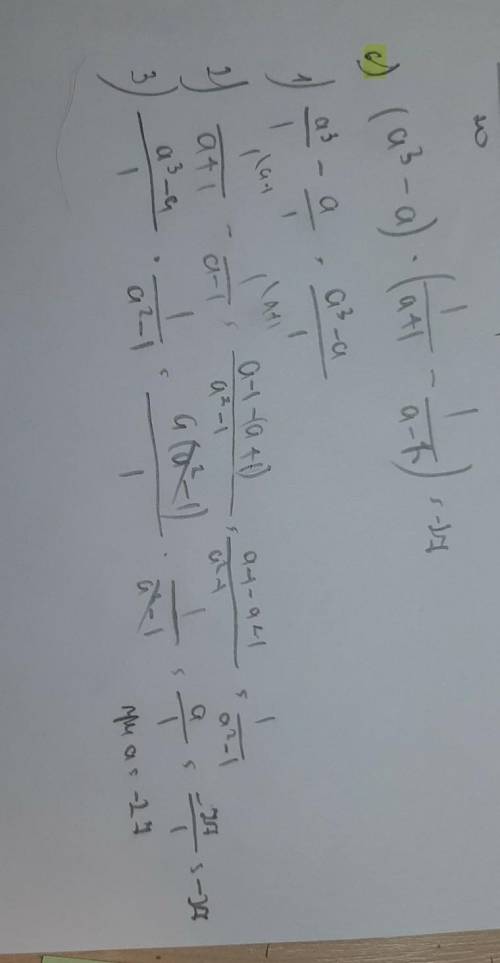 c) (a³ - a) · (1/(a+1) - 1/(a-1)) = -27
1) a³/1 - a/1 = (a³-a)/1
2) 1\a-1/(a+1) - 1\a+1/(a-1) = (a-1-(a+1))/(a²-1) = (a-1-a+1)/(a²-1) = 1/(a²-1)
3) (a³-a)/1 · 1/(a²-1) = a(a²-1)/1 · 1/(a²-1) = a/1 = -27/1 = -27
при a = -27